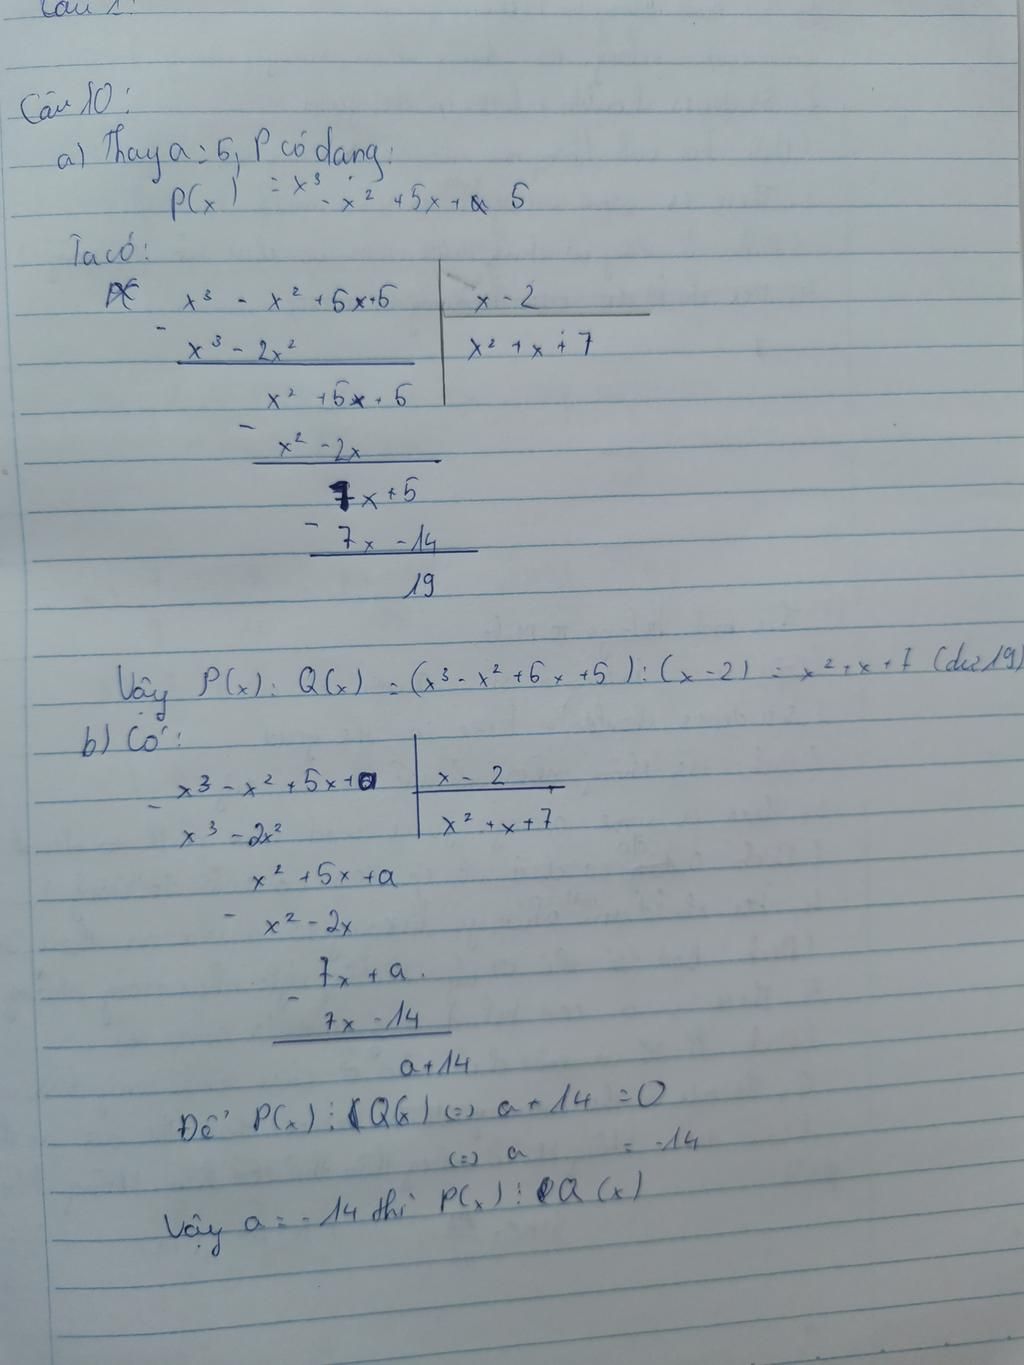 Câu 10:
a) Thay a = 5, P có dạng:
P(x) = x³ - x² + 5x + 5
Ta có:
x³ - x² + 5x + 5 | x - 2
- x³ - 2x² | x² + x + 7
x² + 5x + 5
- x² - 2x
7x + 5
- 7x - 14
19
Vậy P(x) : Q(x) = (x³ - x² + 5x + 5) : (x - 2) = x² + x + 7 (dư 19)
b) Có:
- x³ - x² + 5x + a | x - 2
x³ - 2x² | x² + x + 7
x² + 5x + a
- x² - 2x
7x + a
- 7x - 14
a + 14
Để P(x) ⋮ Q(x) (=) a + 14 = 0
(=) a = -14
Vậy a = -14 thì P(x) ⋮ Q(x)